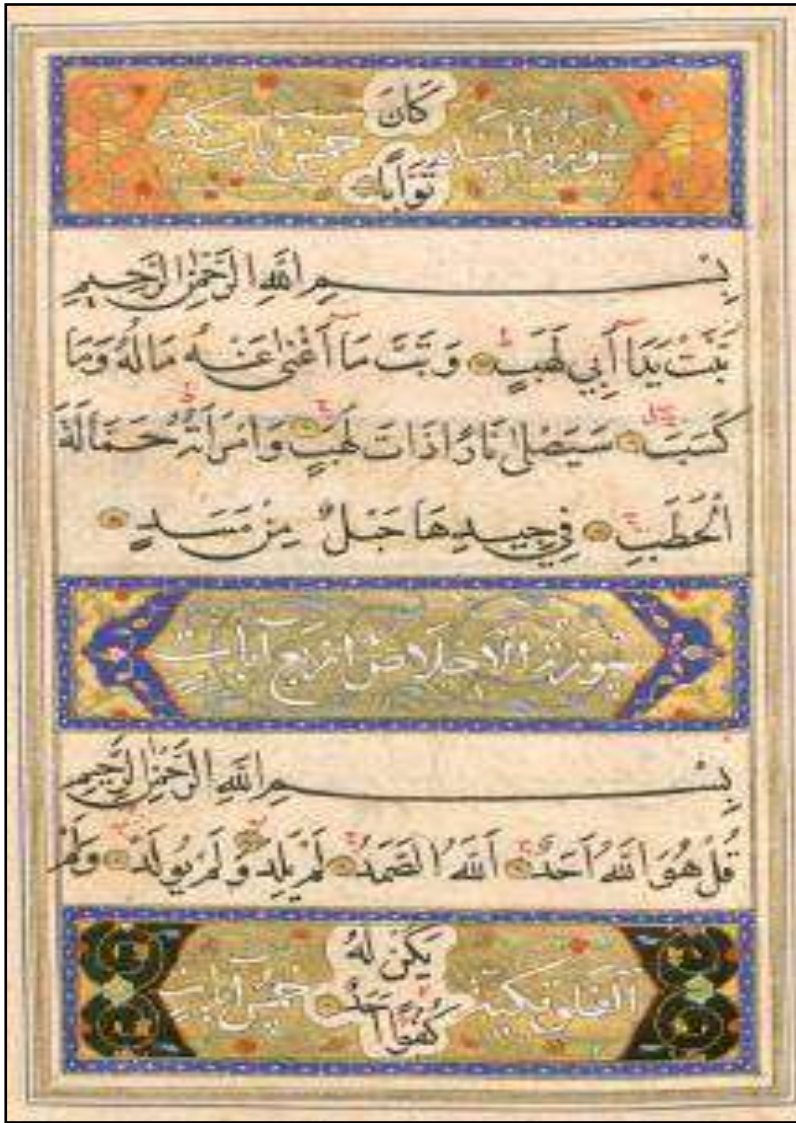 كَانَ
سورة المسد خمس آيات مكية
تَوَّابًا
بِسْمِ اللَّهِ الرَّحْمٰنِ الرَّحِيمِ
تَبَّتْ يَدَا أَبِي لَهَبٍ وَتَبَّ مَا أَغْنٰى عَنْهُ مَالُهُ وَمَا
كَسَبَ سَيَصْلٰى نَارًا ذَاتَ لَهَبٍ وَامْرَأَتُهُ حَمَّالَةَ
الْحَطَبِ فِي جِيدِهَا حَبْلٌ مِنْ مَسَدٍ
سورة الاخلاص اربع آيات
بِسْمِ اللَّهِ الرَّحْمٰنِ الرَّحِيمِ
قُلْ هُوَ اللَّهُ أَحَدٌ اللَّهُ الصَّمَدُ لَمْ يَلِدْ وَلَمْ يُولَدْ وَلَمْ
يَكُنْ لَهُ
الفلق مكية خمس آيات
كُفُوًا أَحَدٌ